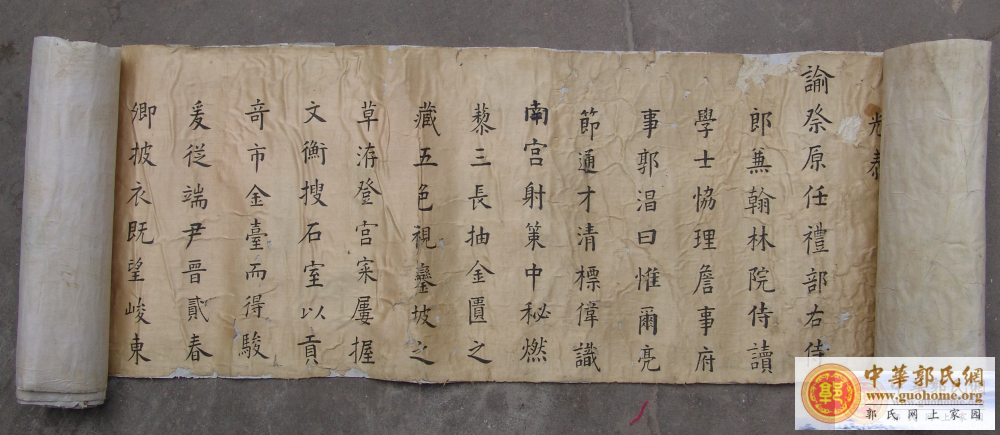 光泰
諭祭原任禮部右侍
郎蒹翰林院侍讀
學士恊理詹事府
事郭淐曰惟爾亮
節通才清標偉識
南宫射策中秘燃
藜三長抽金匱之
藏五色視鑾坡之
草洊登宫寀屢握
文衡搜石室以貢
竒市金臺而得駿
爰從端尹晋貳春
卿披衣既望峻東
中華郭氏網
www.guohome.org
郭氏网上家园